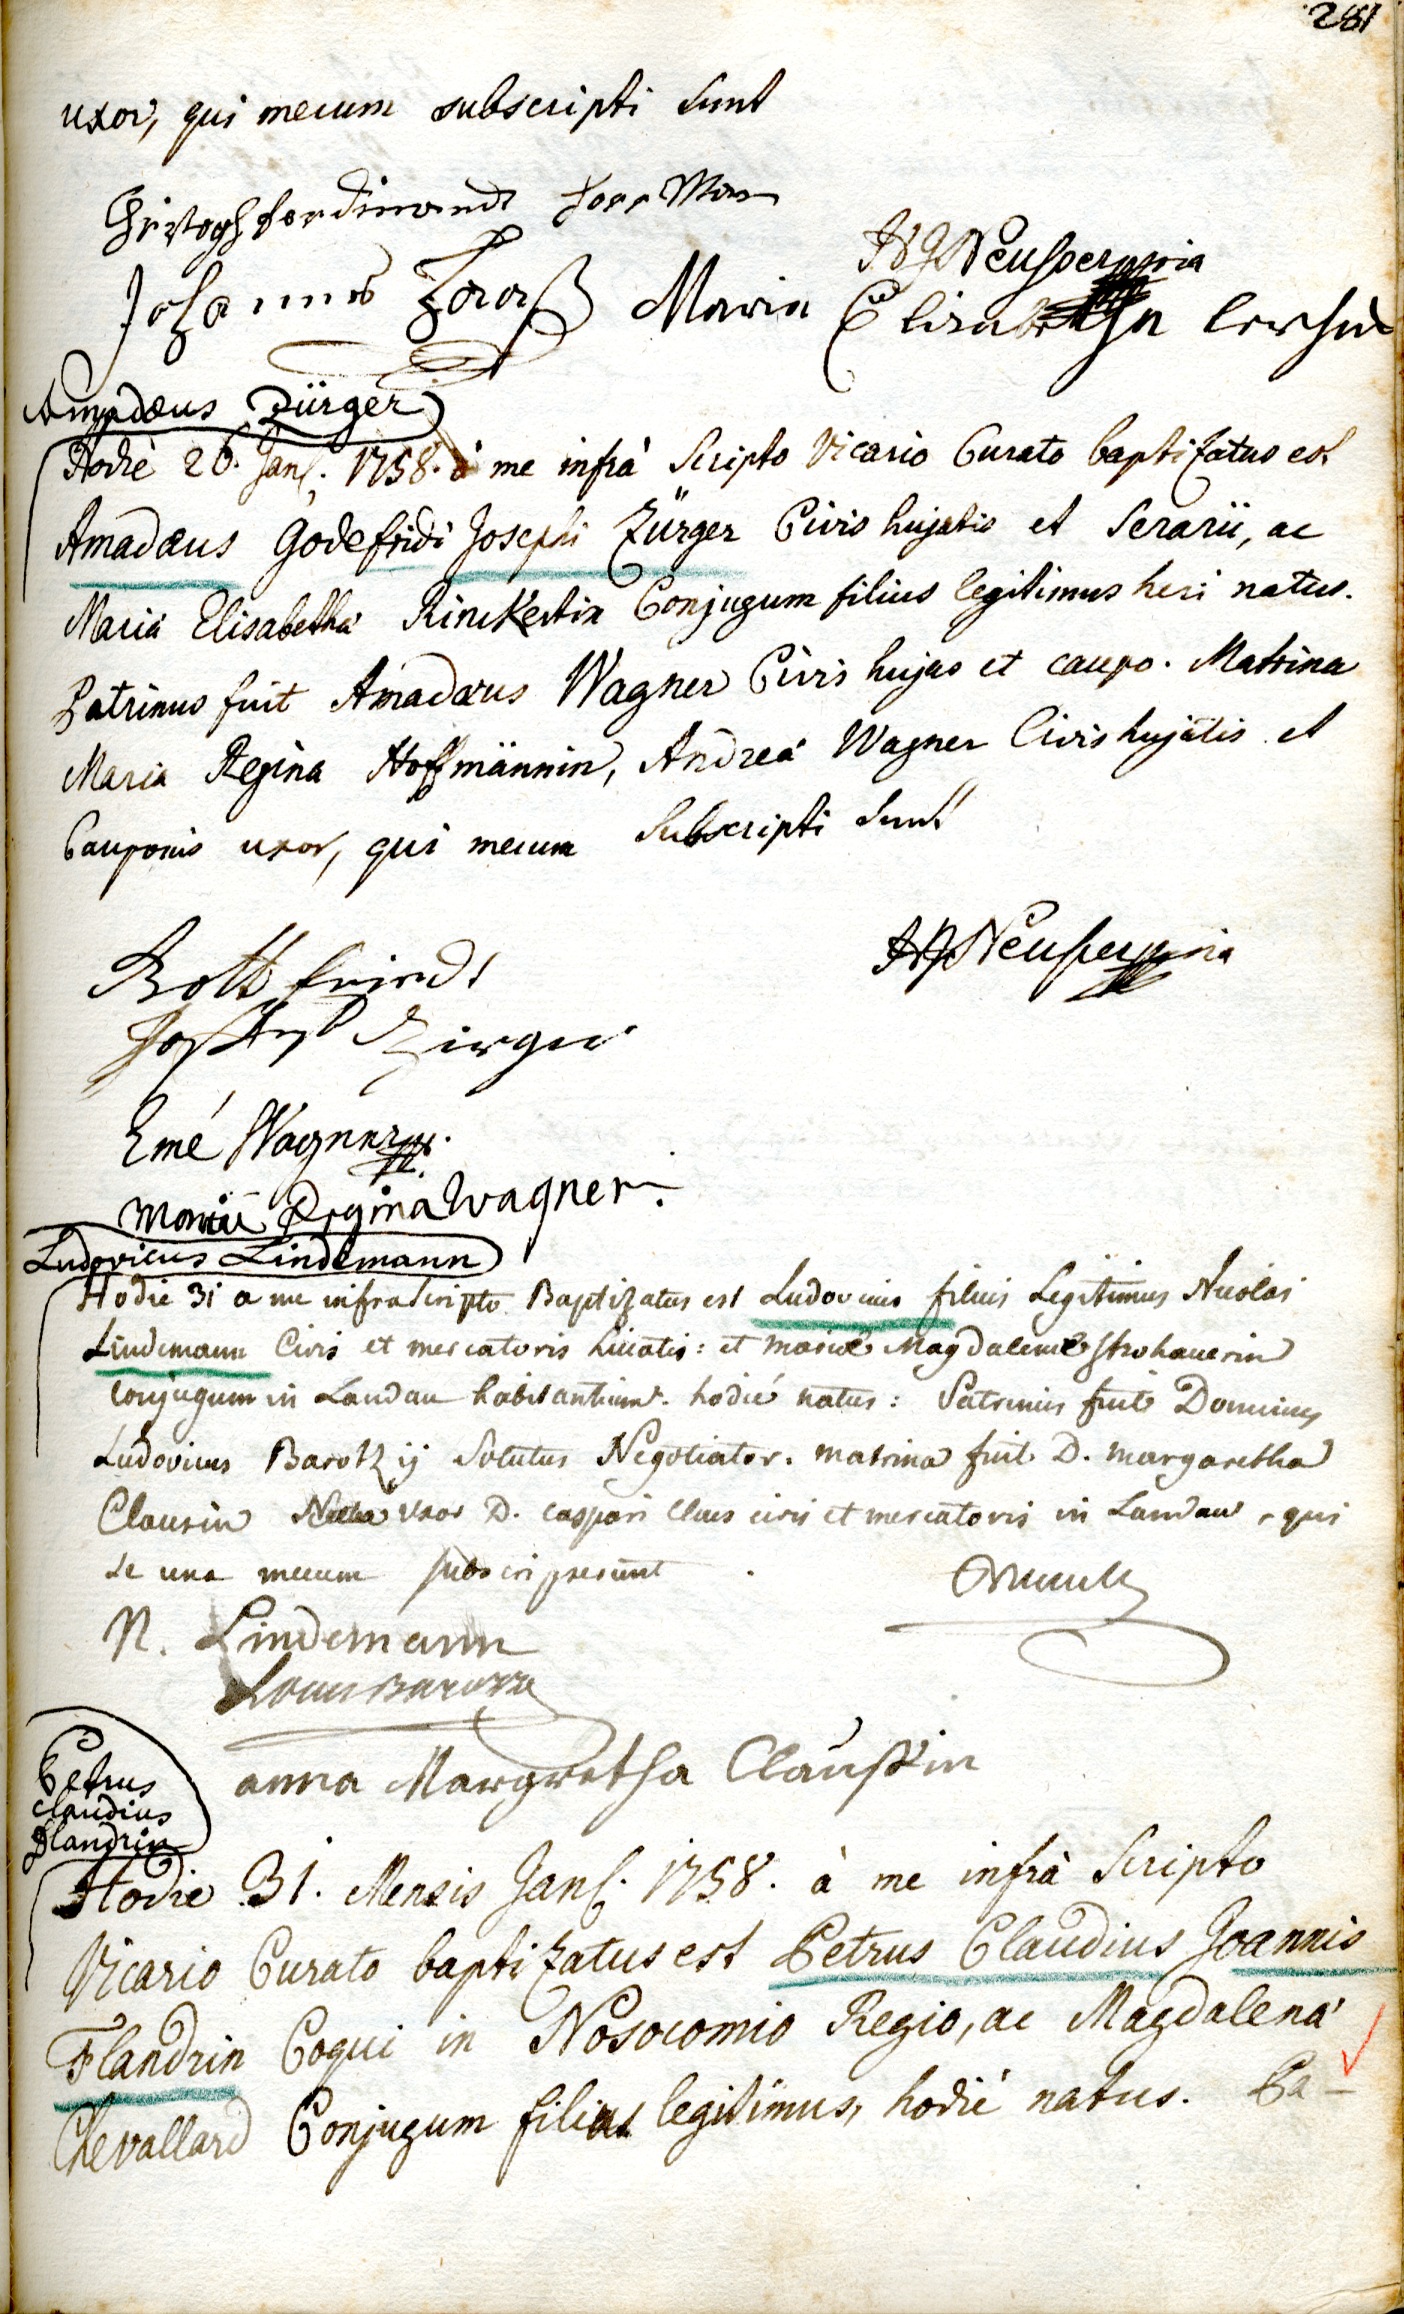 281
uxor, qui mecum subscripti sunt
Johannes Maria Elisabetha
Amadæus Zürger
Hodiè 26. Jan. 1758. à me infrà scripto Vicario Curato baptizatus est
Amadæus Godefridi Josephi Zürger Civis hujatis et Serarii, ac
Mariâ Elisabethâ Conjugum filius legitimus heri natus.
Patrinus fuit Amadæus Wagner Civis hujas et caupo. Matrina
Maria Regina Hoffmännin, Andreâ Wagner Civis hujatis et
Cauponis uxor, qui mecum subscripti sunt
Zirger
Emé Wagner
Regina Wagner.
Ludovicus Lindemann
Hodie 31 a me infrascripto Baptizatus est Ludovicus filius Legitimus Nicolai
Lindemann Civis et mercatoris et mariæ Magdalenæ Strohauerin
conjugum in Landau habitantium. hodié natus: Patrinus fuit Dominus
Ludovicus Solutus Negotiator. matrina fuit D. margaretha
Clausin uxor D. caspari Claus civis et mercatoris in Landau, qui
se una mecum subscripserunt
N. Lindemann
anna Margretha
Petrus
Claudius
Flandrin
Hodie 31. Mensis Jan. 1758. à me infrà Scripto
Vicario Curato baptizatus est Petrus Claudius Joannis
Flandrin Coqui in Nosocomio Regio, ac Magdalenâ
Chevallard Conjugum filius legitimus, hodié natus. Pa-